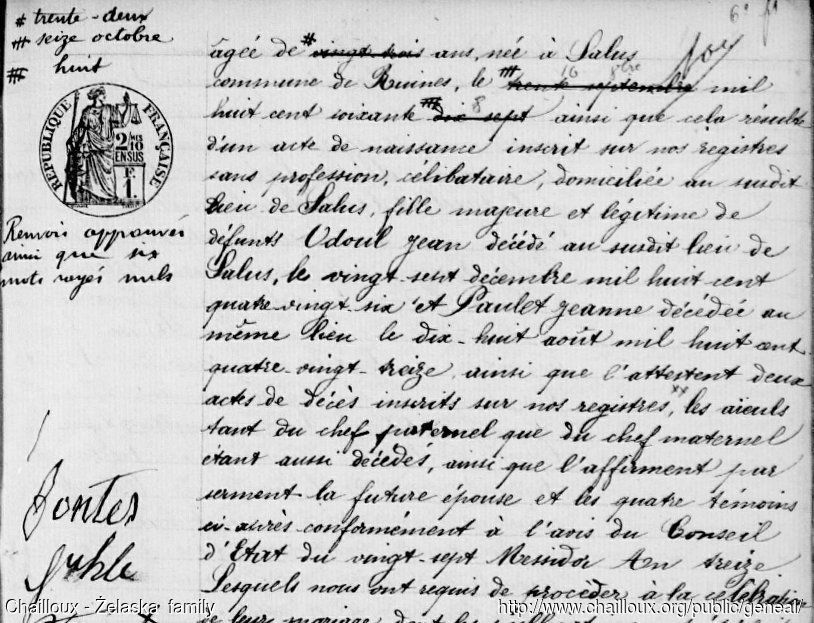 # trente-deux
## seize octobre
### huit
RÉPUBLIQUE FRANÇAISE
2/10 EN SUS
Renvois approuvés
ainsi que six
mots rayés nuls
âgée de # vingt trois ans, née à Salus
commune de Ruines, le ## trente septembre mil
16 8bre
huit cent soixante ### dix sept ainsi que cela résulte
8
d'un acte de naissance inscrit sur nos registres
sans profession, célibataire, domiciliée au susdit
lieu de Salus, fille majeure et légitime de
défunts Udoul Jean décédé au susdit lieu de
Salus, le vingt-sept décembre mil huit cent
quatre-vingt-six et Paulet Jeanne décédée au
même lieu le dix-huit août mil huit cent
quatre-vingt-treize, ainsi que l'attestent deux
actes de décès inscrits sur nos registres, les aïeuls
tant du chef paternel que du chef maternel
étant aussi décédés, ainsi que l'affirment par
serment la future épouse et les quatre témoins
ci-après conformément à l'avis du Conseil
d'Etat du vingt-sept Messidor An treize
Lesquels nous ont requis de procéder à la célébration
de leur mariage dont les
Chailloux - Żelaska family
http://www.chailloux.org/public/geneal/